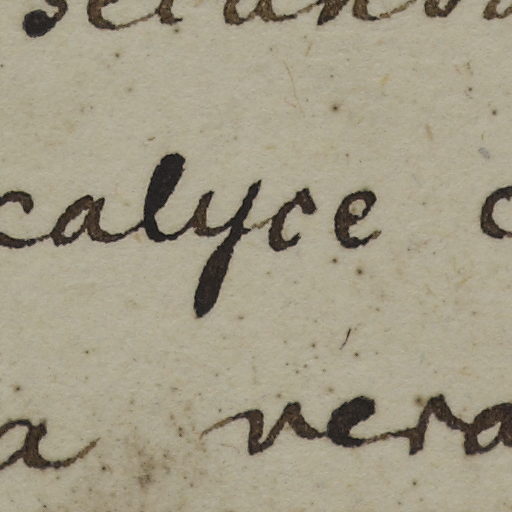 calyce c
a vera